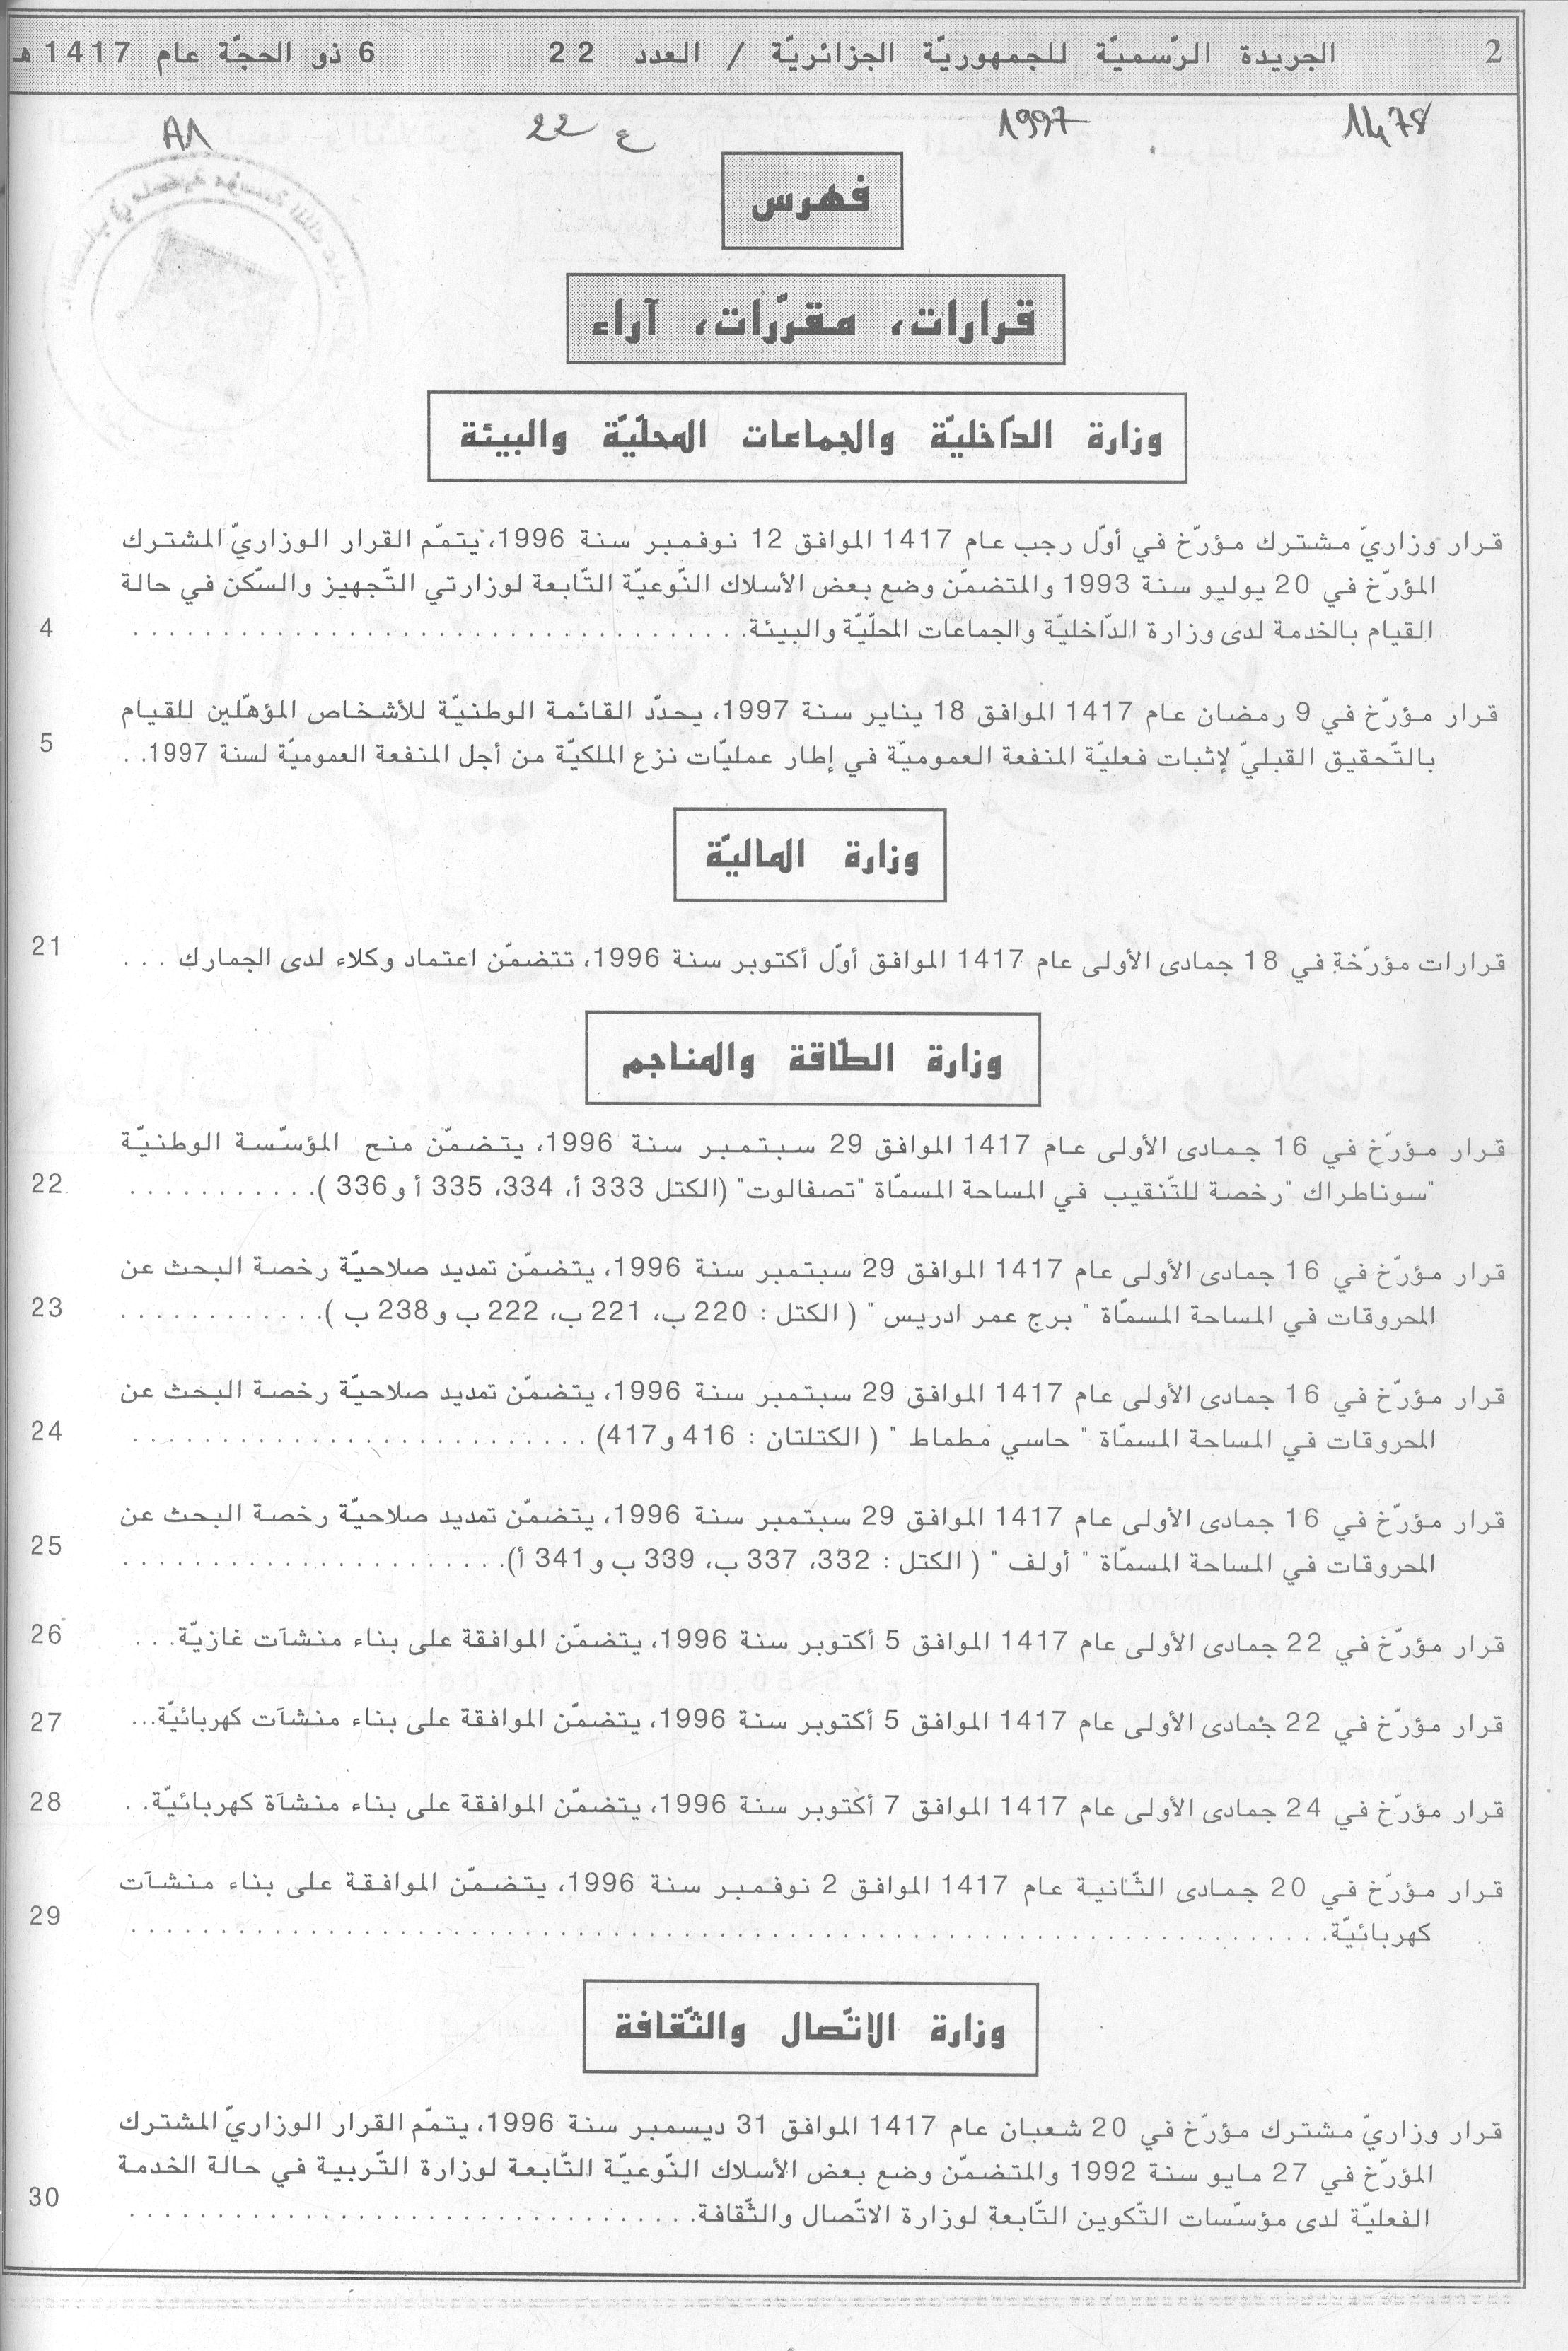 2
الجريدة الرّسميّة للجمهوريّة الجزائريّة / العدد 22
6 ذو الحجّة عام 1417 هـ
1478
1997
ع 22
A1
فهرس
قرارات، مقرّرات، آراء
وزارة الدّاخليّة والجماعات المحلّيّة والبيئة
قرار وزاريّ مشترك مؤرّخ في أوّل رجب عام 1417 الموافق 12 نوفمبر سنة 1996، يتمّم القرار الوزاريّ المشترك
المؤرّخ في 20 يوليو سنة 1993 والمتضمّن وضع بعض الأسلاك النّوعيّة التّابعة لوزارتي التّجهيز والسّكن في حالة
القيام بالخدمة لدى وزارة الدّاخليّة والجماعات المحلّيّة والبيئة. . . . . . . . . . . . . . . . . . . . . . . . . . . . . . . . . . . 4
قرار مؤرّخ في 9 رمضان عام 1417 الموافق 18 يناير سنة 1997، يحدّد القائمة الوطنيّة للأشخاص المؤهّلين للقيام
بالتّحقيق القبليّ لإثبات فعليّة المنفعة العموميّة في إطار عمليّات نزع الملكيّة من أجل المنفعة العموميّة لسنة 1997. . 5
وزارة الماليّة
قرارات مؤرّخة في 18 جمادى الأولى عام 1417 الموافق أوّل أكتوبر سنة 1996، تتضمّن اعتماد وكلاء لدى الجمارك . . . 21
وزارة الطّاقة والمناجم
قرار مؤرّخ في 16 جمادى الأولى عام 1417 الموافق 29 سبتمبر سنة 1996، يتضمّن منح المؤسّسة الوطنيّة
"سوناطراك "رخصة للتّنقيب في المساحة المسمّاة "تصفالوت" (الكتل 333 أ، 334، 335 أ و336 ). . . . . . . . . . . . 22
قرار مؤرّخ في 16 جمادى الأولى عام 1417 الموافق 29 سبتمبر سنة 1996، يتضمّن تمديد صلاحيّة رخصة البحث عن
المحروقات في المساحة المسمّاة " برج عمر ادريس " ( الكتل : 220 ب، 221 ب، 222 ب و238 ب ). . . . . . . . . . . . 23
قرار مؤرّخ في 16 جمادى الأولى عام 1417 الموافق 29 سبتمبر سنة 1996، يتضمّن تمديد صلاحيّة رخصة البحث عن
المحروقات في المساحة المسمّاة " حاسي مطماط " ( الكتلتان : 416 و417) . . . . . . . . . . . . . . . . . . . . . . . . . . 24
قرار مؤرّخ في 16 جمادى الأولى عام 1417 الموافق 29 سبتمبر سنة 1996، يتضمّن تمديد صلاحيّة رخصة البحث عن
المحروقات في المساحة المسمّاة " أولف " ( الكتل : 332، 337 ب، 339 ب و341 أ). . . . . . . . . . . . . . . . . . . . . . 25
قرار مؤرّخ في 22 جمادى الأولى عام 1417 الموافق 5 أكتوبر سنة 1996، يتضمّن الموافقة على بناء منشآت غازيّة. . . 26
قرار مؤرّخ في 22 جمادى الأولى عام 1417 الموافق 5 أكتوبر سنة 1996، يتضمّن الموافقة على بناء منشآت كهربائيّة... 27
قرار مؤرّخ في 24 جمادى الأولى عام 1417 الموافق 7 أكتوبر سنة 1996، يتضمّن الموافقة على بناء منشآة كهربائيّة. . 28
قرار مؤرّخ في 20 جمادى الثّانية عام 1417 الموافق 2 نوفمبر سنة 1996، يتضمّن الموافقة على بناء منشآت
كهربائيّة. . . . . . . . . . . . . . . . . . . . . . . . . . . . . . . . . . . . . . . . . . . . . . . . . . . . . . . . . . . . . . . . . . 29
وزارة الاتّصال والثّقافة
قرار وزاريّ مشترك مؤرّخ في 20 شعبان عام 1417 الموافق 31 ديسمبر سنة 1996، يتمّم القرار الوزاريّ المشترك
المؤرّخ في 27 مايو سنة 1992 والمتضمّن وضع بعض الأسلاك النّوعيّة التّابعة لوزارة التّربية في حالة الخدمة
الفعليّة لدى مؤسّسات التّكوين التّابعة لوزارة الاتّصال والثّقافة. . . . . . . . . . . . . . . . . . . . . . . . . . . . . . . . 30